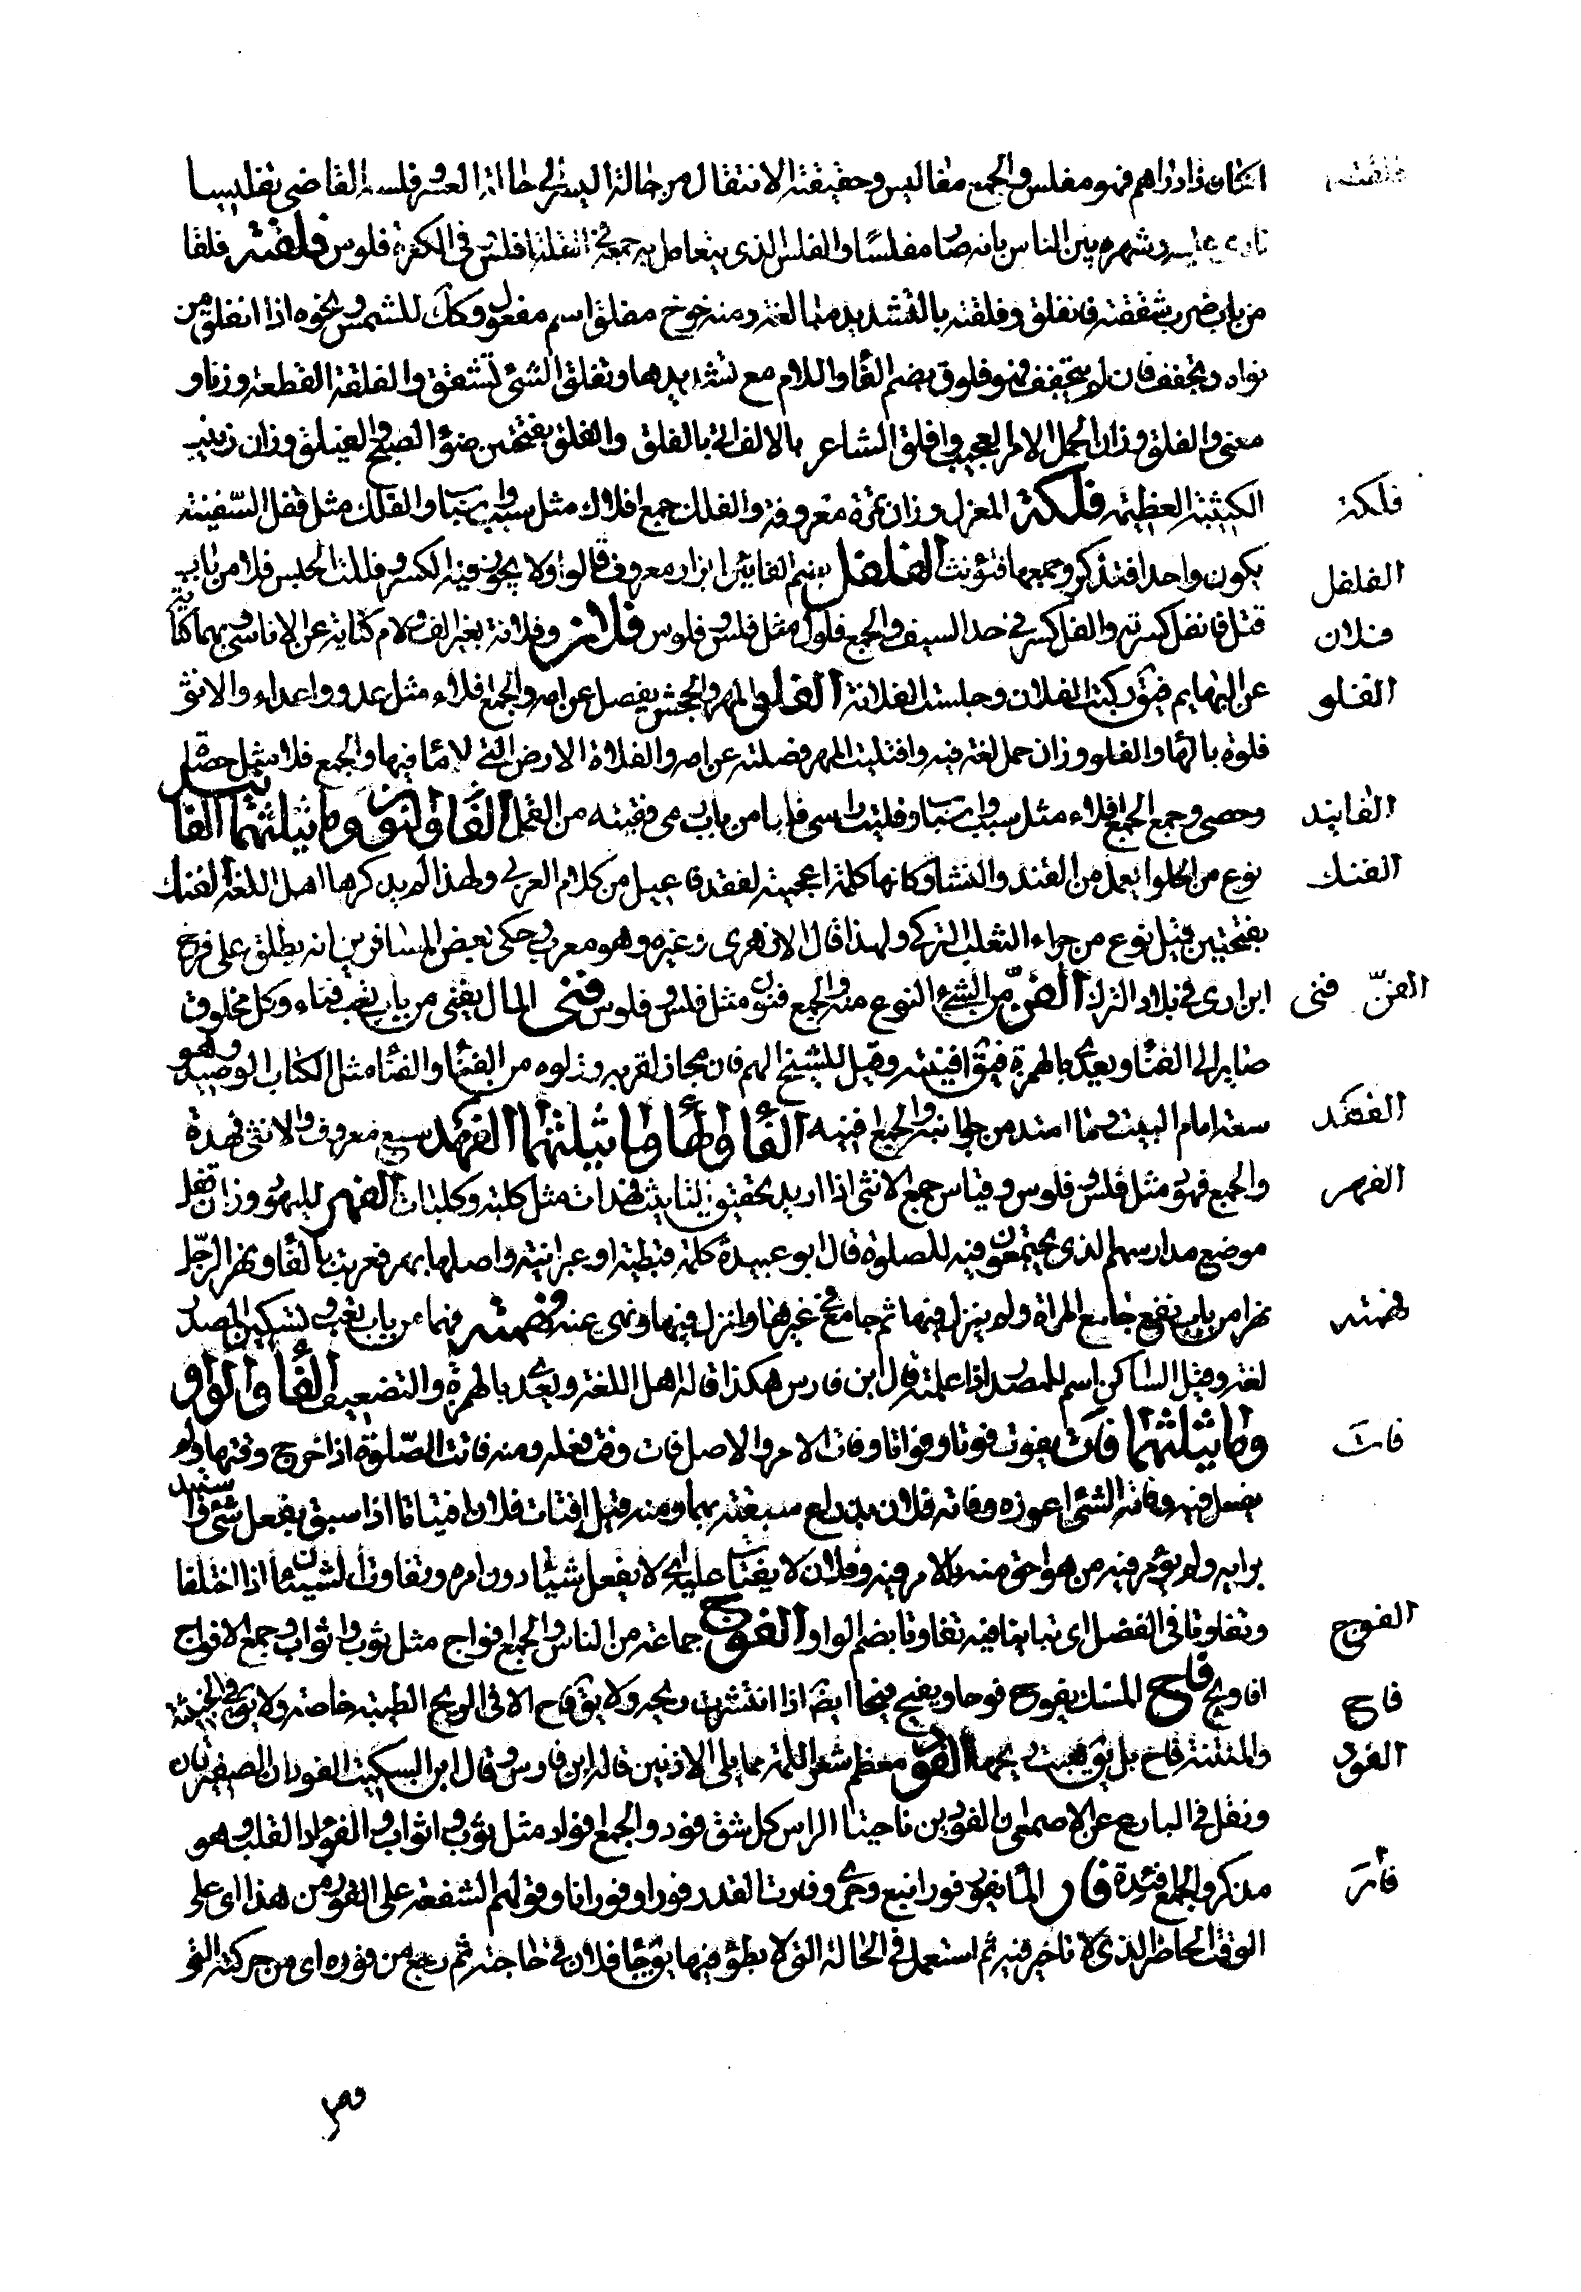 ان كان ذا دراهم فهو مفلس والجمع مفاليس وحقيقته الانتقال من حالة اليسر الى حالة العسر وفلسه القاضى تفليسا
نادى عليه وشهره بين الناس بانه صار مفلسا والفلس الذى يتعامل به جمعه فى القلة افلس وفى الكثرة فلوس فلقته فلقا
من باب ضرب شققته فانفلق وفلقته بالتشديد مبالغة ومنه خوخ مفلق اسم مفعول وكك للمشمش ونحوه اذا انفلق من
نواه وتجفف فان لم يتجفف فهو فلوق بضم الفا واللام مع تشديدها وتفلق الشئ تشقق والفلقة القطعة وزنا و
معنى والفلق وزان الحمل الامر العجيب وافلق الشاعر بالالف اتى بالفلق والفلق بفتحتين ضوء الصبح والفيلق وزان زينب
فلكة
الكتيبة العظيمة فلكة المغزل وزان تمرة معروفة والفلك جمع افلاك مثل سبب واسباب والفلك مثل قفل السفينة
الفلفل
يكون واحدا فتذكر وجمعها فتؤنث الفلفل بضم الفائين ابزار معروف قالوا ولا يجوز فيه الكسر وفللت الجيش فلا من باب
فلان
قتل فانفل كسرته والفل كسر فى حد السيف والجمع فلول مثل فلس وفلوس فلان وفلانة بغير الف ولام كناية عن الاناسى وبهما كناية
الفلو
عن البهايم فيق ركبت الفلان وحلبت الفلانة الفلو المهر والجحش يفصل عن امه والجمع افلاء مثل عدو واعداء والانثى
فلوة بالها والفلو وزان حمل لغة فيه وافتليت المهر فصلته عن امه والفلاة الارض التى لا ما فيها والجمع فلا مثل حصاة
الفانيد
وحصى وجمع الجمع افلاء مثل سبب واسباب وفليت راسى فليا من باب رمى نقيته من القمل الفا والنون وما يثلثهما الفانيذ
الفنك
نوع من الحلوا يعمل من القند والنشا وكانها كلمة اعجمية لفقد فاعيل من كلام العرب ولهذا لم يذكرها اهل اللغة الفنك
بفتحتين قيل نوع من جراء الثعلب التركى ولهذا قال الازهرى وغيره وهو معرب وحكى بعض المسافرين انه يطلق على فرخ
الفنّ فنى
ابن اوى فى بلاد الترك الفنّ من الشئ النوع منه والجمع فنون مثل فلس وفلوس فنى المال يفنى من باب تعب فناء وكل مخلوق
صاير الى الفنا ويعدى بالهمزة فيق افنيته وقيل للشيخ الهم فان مجازا لقربه ودنوه من الفنا والفنا مثل الكتاب الوصيد وهو
الفهد
سعة امام البيت وقيل ما امتد من جوانبه والجمع افنيه الفا والها وما يثلثهما الفهد سبع معروف والانثى فهدة
الفهر
والجمع فهود مثل فلس وفلوس وقياس جمع الانثى اذا اريد تحقيق التانيث فهدات مثل كلبة وكلبات الفهر لليهود وزان قفل
موضع مدارسهم الذى يجتمعون فيه للصلوة قال ابو عبيدة كلمة قبطية او عبرانية واصلها بهر فعربت بالفا وفهر الرجل
فهمته
فهرا من باب نفع جامع المراة ولم ينزل فيها ثم جامع غيرها وانزل فيها ونهى عنه فهمته فهما من باب تعب وتسكين المصدر
لغة وقيل الساكن اسم للمصدر اذا علمته قال ابن فارس هكذا قاله اهل اللغة ويعدى بالهمزة والتضعيف الفا والواو
فات
وما يثلثهما فات يفوت فوتا وفواتا وفات الامر والاصل فات وقت فعله ومنه فاتت الصّلوة اذا خرج وقتها ولم
يفعل فيه وفاته الشئ اعوزه وفاته فلان بذراع سبقه بها ومنه قيل افتات فلان افتياتا اذا سبق بفعل شئ واستبد
برايه ولم يؤامر فيه من هو احق منه بالامر فيه وفلان لا يفتات عليه اى لا يفعل شيئا دون امره وتفاوت الشيئان اذا اختلفا
الفوج
وتفاوتا فى الفضل اى تباينا فيه تفاوتا بضم الواو الفوج جماعة من الناس والجمع افواج مثل ثوب واثواب وجمع الافواج
فاح
افاويج فاح المسك يفوح فوحا ويفيح فيحا ايض اذا انتشرت ريحه ولا يق فاح الا فى الريح الطيبة خاصة ولا يق فى الخبيثة
الفود
والمنتنة فاح بل يق هبت ريحها الفود معظم شعر اللمة مما يلى الاذنين قاله ابن فارس وقال ابن السكيت الفودان الضفيرتان
ونقل فى البارع عن الاصمعى ان الفودين ناحيتا الراس كل شق فود والجمع افواد مثل ثوب واثواب والفؤاد القلب وهو
فار
مذكر والجمع افئدة فار الما يفور فورا نبع وجرى وفارت القدر فورا وفورانا وقولهم الشفعة على الفور من هذا اى على
الوقت الحاضر الذى لا تاخير فيه ثم استعمل فى الحالة التى لا بطؤ فيها يق جا فلان فى حاجته ثم رجع من فوره اى من حركته التى